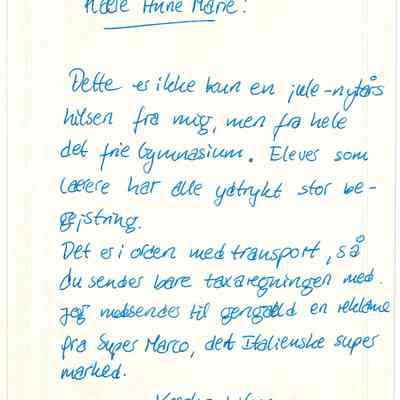 Kære Anne Marie:
Dette er ikke kun en jule-nytårs
hilsen fra mig, men fra hele
det frie Gymnasium. Elever som
Lærere har alle ydtrykt stor be-
gejstring.
Det er i orden med transport, så
du sendes bare taxaregningen med.
Jeg medsendes til gengæld en reklame
fra Super Marco, det Italienske super
marked.